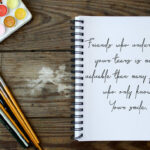 Friends who understand
your tears is more
valuable than many friends
who only know
Your smile.